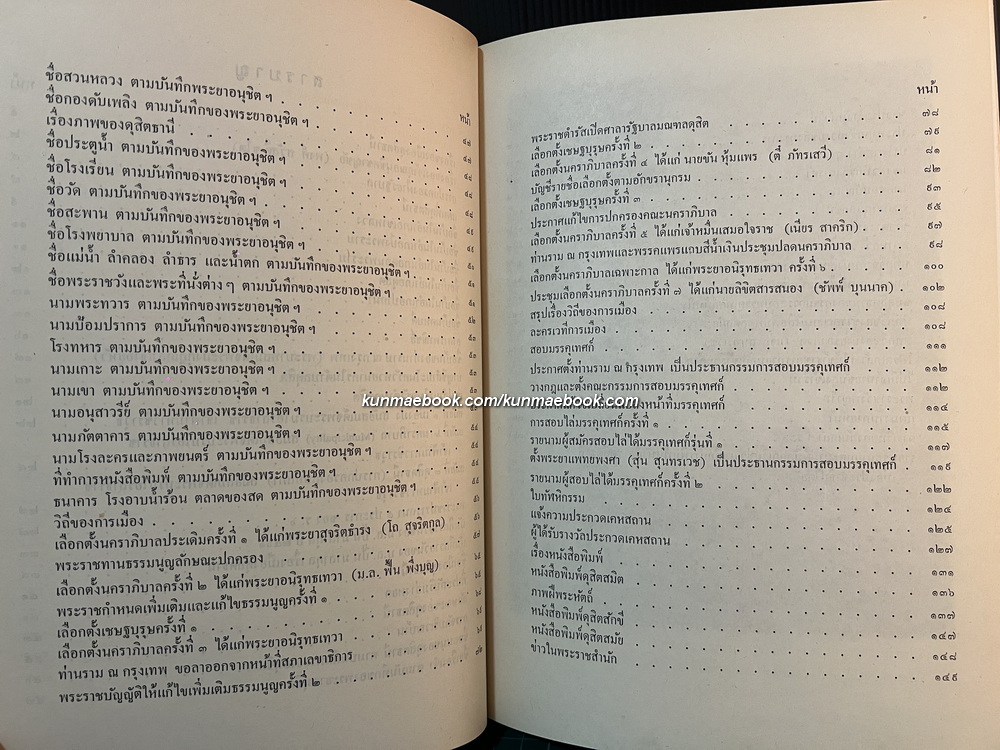 ชื่อสวนหลวง ตามบันทึกพระยาอนุชิต ฯ
หน้า
ชื่อกองดับเพลิง ตามบันทึกของพระยาอนุชิต ฯ
เรื่องภาพของดุสิตธานี
ชื่อประตูน้ำ ตามบันทึกของพระยาอนุชิต ฯ
ชื่อโรงเรียน ตามบันทึกของพระยาอนุชิต ฯ
ชื่อวัด ตามบันทึกของพระยาอนุชิต ฯ
ชื่อสะพาน ตามบันทึกของพระยาอนุชิต ฯ
ชื่อโรงพยาบาล ตามบันทึกของพระยาอนุชิต ฯ
ชื่อแม่น้ำ ลำคลอง ลำธาร และน้ำตก ตามบันทึกของพระยาอนุชิต ฯ
ชื่อพระราชวังและพระที่นั่งต่าง ๆ ตามบันทึกของพระยาอนุชิต ฯ
นามพระทวาร ตามบันทึกของพระยาอนุชิต ฯ
นามป้อมปราการ ตามบันทึกของพระยาอนุชิต ฯ
โรงทหาร ตามบันทึกของพระยาอนุชิต ฯ
นามเกาะ ตามบันทึกของพระยาอนุชิต ฯ
นามเขา ตามบันทึกของพระยาอนุชิต ฯ
นามอนุสาวรีย์ ตามบันทึกของพระยาอนุชิต ฯ
นามภัตตาคาร ตามบันทึกของพระยาอนุชิต ฯ
นามโรงละครและภาพยนตร์ ตามบันทึกของพระยาอนุชิต ฯ
ที่ทำการหนังสือพิมพ์ ตามบันทึกของพระยาอนุชิต ฯ
ธนาคาร โรงอาบน้ำร้อน ตลาดของสด ตามบันทึกของพระยาอนุชิต ฯ
วิถีของการเมือง
เลือกตั้งนคราภิบาลประเดิมครั้งที่ ๑ ได้แก่พระยาสุจริตธำรง (โถ สุจริตกุล)
พระราชทานธรรมนูญลักษณะปกครอง
เลือกตั้งนคราภิบาลครั้งที่ ๒ ได้แก่พระยาอนิรุทธเทวา (ม.ล. ฟื้น พึ่งบุญ)
พระราชกำหนดเพิ่มเติมและแก้ไขธรรมนูญครั้งที่ ๑
เลือกตั้งเชษฐบุรุษครั้งที่ ๑
เลือกตั้งนคราภิบาลครั้งที่ ๓ ได้แก่พระยาอนิรุทธเทวา
ท่านราม ณ กรุงเทพ ขอลาออกจากหน้าที่สภาเลขาธิการ
พระราชบัญญัติให้แก้ไขเพิ่มเติมธรรมนูญครั้งที่ ๒
หน้า
พระราชดำรัสเปิดศาลารัฐบาลมณฑลดุสิต ๗๘
เลือกตั้งเชษฐบุรุษครั้งที่ ๒ ๗๙
เลือกตั้งนคราภิบาลครั้งที่ ๔ ได้แก่ นายขัน หุ้มแพร (ตี๋ ภัทรเสวี) ๘๑
บัญชีรายชื่อเลือกตั้งตามอักขรานุกรม ๘๒
เลือกตั้งเชษฐบุรุษครั้งที่ ๓ ๙๓
ประกาศแก้ไขการปกครองคณะนคราภิบาล ๙๕
เลือกตั้งนคราภิบาลครั้งที่ ๕ ได้แก่เจ้าหมื่นเสมอใจราช (เนียร สาคริก) ๙๗
ท่านราม ณ กรุงเทพและพรรคแพรแถบสีน้ำเงินประชุมปลดนคราภิบาล ๙๘
เลือกตั้งนคราภิบาลเฉพาะกาล ได้แก่พระยาอนิรุทธเทวา ครั้งที่ ๖ ๑๐๐
ประชุมเลือกตั้งนคราภิบาลครั้งที่ ๗ ได้แก่นายลิขิตสารสนอง (ชัพพ์ บุนนาค) ๑๐๒
สรุปเรื่องวิถีของการเมือง ๑๐๘
ละครเวทีการเมือง ๑๐๘
สอบมรรคุเทศก์ ๑๑๑
ประกาศตั้งท่านราม ณ กรุงเทพ เป็นประธานกรรมการสอบมรรคุเทศก์ ๑๑๒
วางกฎและตั้งคณะกรรมการสอบมรรคุเทศก์ ๑๑๒
หน้าที่มรรคุเทศก์ ๑๑๔
การสอบไล่มรรคุเทศก์ครั้งที่ ๑ ๑๑๕
รายนามผู้สมัครสอบไล่ได้มรรคุเทศก์รุ่นที่ ๑ ๑๑๗
ตั้งพระยาแพทยพงศา (สุ่น สุนทรเวช) เป็นประธานกรรมการสอบมรรคุเทศก์ ๑๑๙
รายนามผู้สอบไล่ได้มรรคุเทศก์ครั้งที่ ๒ ๑๒๒
ใบทัฬหิกรรม ๑๒๔
แจ้งความประกวดเคหสถาน ๑๒๕
ผู้ได้รับรางวัลประกวดเคหสถาน ๑๒๗
เรื่องหนังสือพิมพ์ ๑๓๑
หนังสือพิมพ์ดุสิตสมิต ๑๓๖
ภาพฝีพระหัตถ์ ๑๓๗
หนังสือพิมพ์ดุสิตสักขี ๑๔๗
หนังสือพิมพ์ดุสิตสมัย ๑๔๘
ข่าวในพระราชสำนัก ๑๔๙
kunmaebook.com/kunmaebook.com